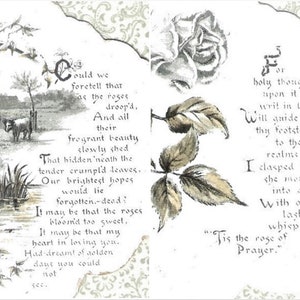 Could we
foretell that
as the roses
droop'd,
And all
their
fragrant beauty
slowly shed
That hidden 'neath the
tender crumpl'd leaves,
Our brightest hopes
would lie
forgotten-dead?
It may be that the roses
bloom'd too sweet,
It may be that my
heart in loving you,
Had dreamt of golden
days you could
not
see.
For
holy though
upon it
writ in l
Will guide
thy footst
to
realms
I clasped
she mo
into
With o
last
whisp
"Tis the rose of
Prayer."